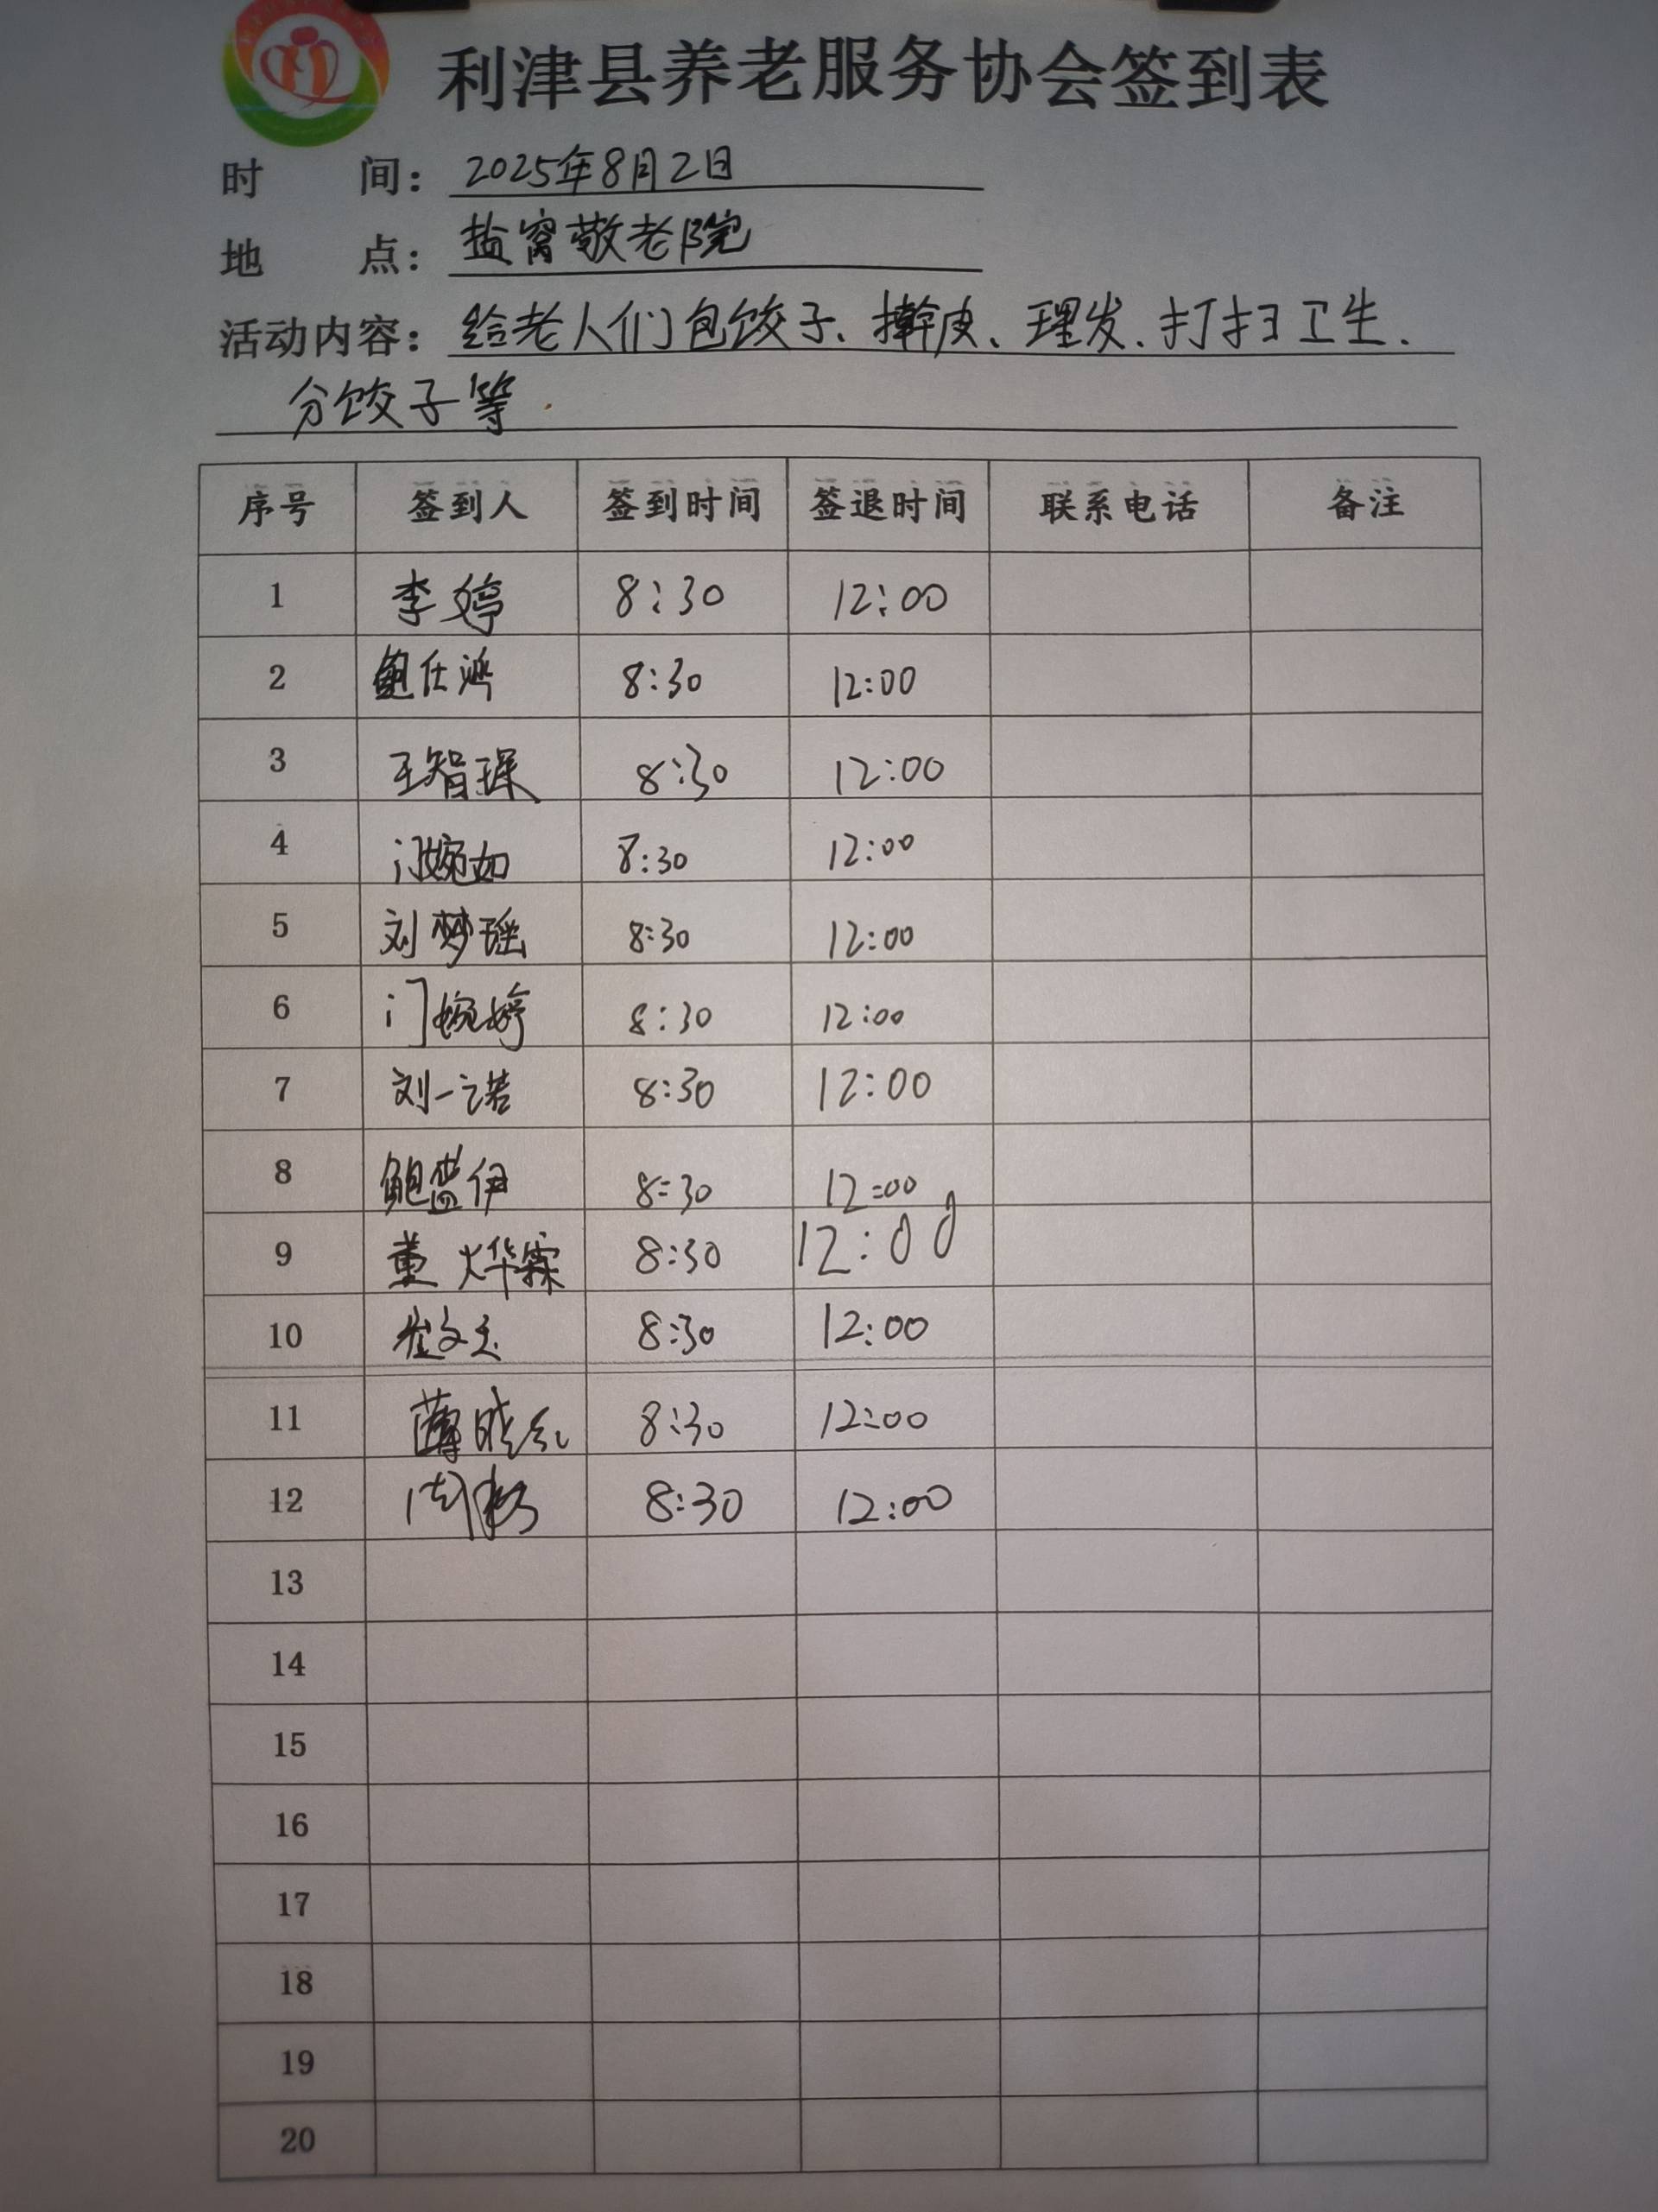 利津县养老服务协会签到表
时 间： 2025年8月2日
地 点： 盐窝敬老院
活动内容： 给老人们包饺子、擀皮、理发、打扫卫生、
分饺子等
序号 签到人 签到时间 签退时间 联系电话 备注
1 李婷 8:30 12:00
2 鲍仕鸿 8:30 12:00
3 王智琛 8:30 12:00
4 门婉如 8:30 12:00
5 刘梦瑶 8:30 12:00
6 门婉婷 8:30 12:00
7 刘一诺 8:30 12:00
8 鲍 伊 8:30 12:00
9 董烨霖 8:30 12:00
10 崔文 8:30 12:00
11 薄晓红 8:30 12:00
12 周 8:30 12:00
13
14
15
16
17
18
19
20